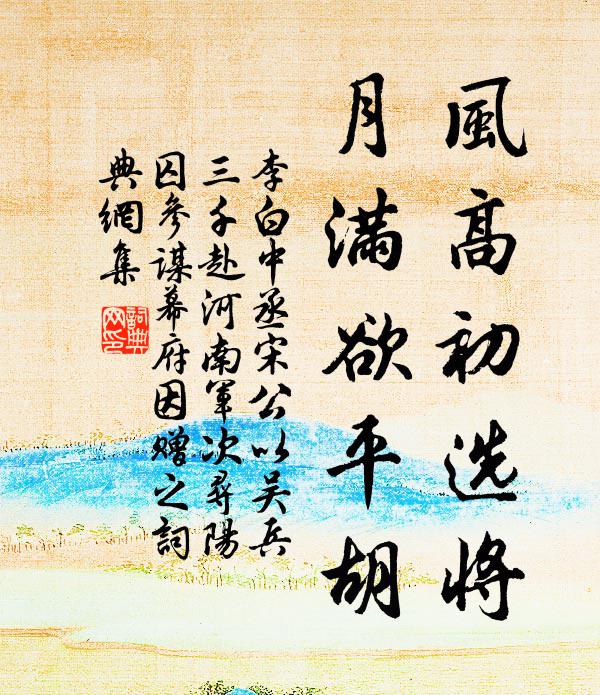 風高初选將
月满欲平胡
李白中丞宋公以吴兵
三千赴河南軍次尋陽
囚參谋幕府因赠之詞
典網集
詞典
网印